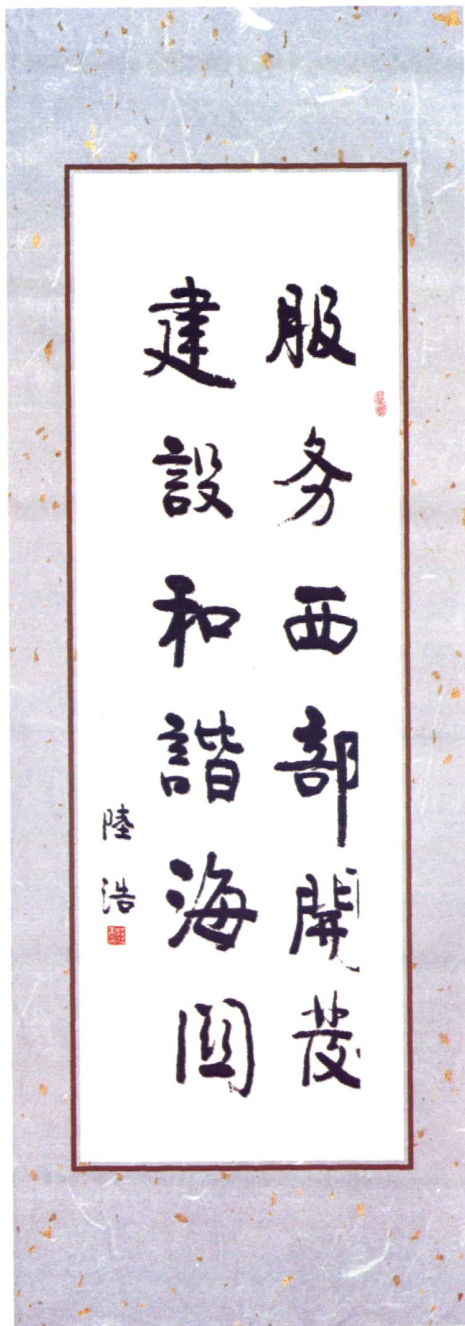 服务西部開發
建設和諧海関
陸浩